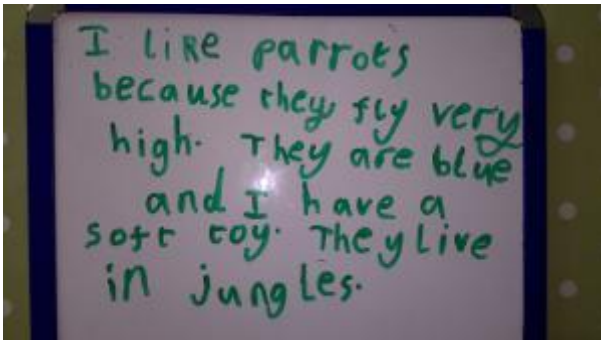 I like parrots
because they fly very
high. They are blue
and I have a
soft toy. They Live
in jungles.